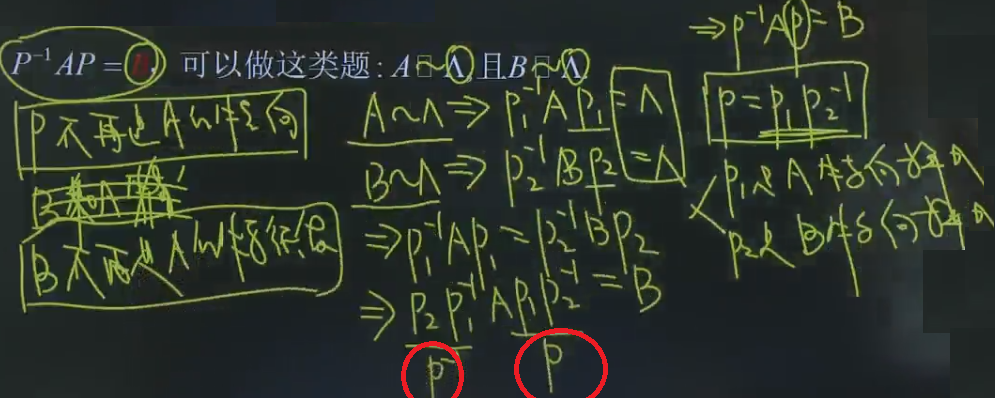 P⁻¹AP = B, 可以做这类题: A□~Λ, 且B□~Λ.
P不再是A的特征向
B不再是A的特征值
A~Λ ⇒ P₁⁻¹AP₁ = Λ
B~Λ ⇒ P₂⁻¹BP₂ = Λ
⇒ P₁⁻¹AP₁ = P₂⁻¹BP₂
⇒ P₂P₁⁻¹AP₁P₂⁻¹ = B
P⁻ P
⇒ P⁻¹AP = B
P = P₁P₂⁻¹
P₁是A特向
P₂是B特向